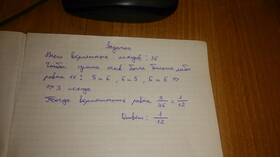 Задача
Всего вариантов исходов: 36
Чтобы сумма очков была больше либо
равна 11: 5 и 6, 6 и 5, 6 и 6 ⇒
⇒ 3 исхода
Тогда вероятность равна 3/36 = 1/12
Ответ: 1/12